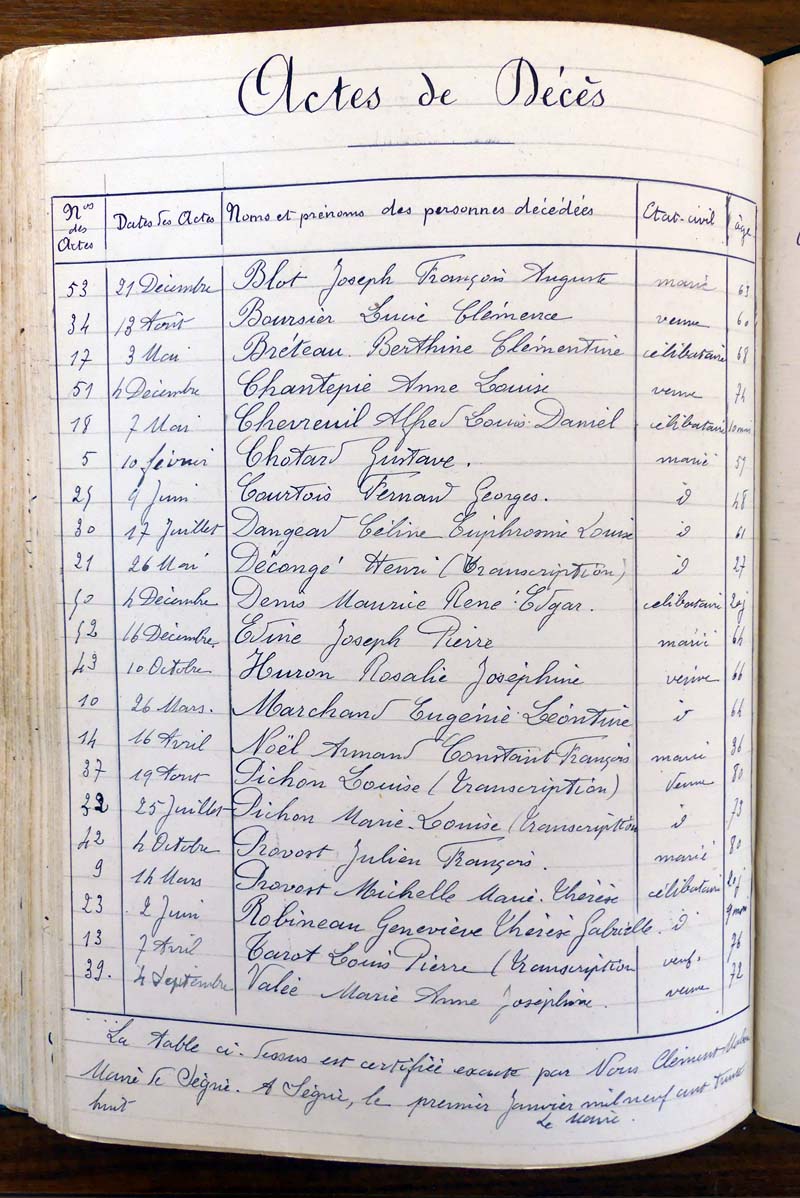 Actes de Décès
Nos des Actes Dates des Actes Noms et prénoms des personnes décédées Etat-civil âge
53 21 Décembre Blot Joseph François Auguste marié 63
34 13 Août Boursier Lucie Clémence veuve 60
17 3 Mai Bréteau Berthine Clémentine célibataire 68
51 4 Décembre Chantepie Anne Louise veuve 74
18 7 Mai Chevreuil Alfred Louis Daniel célibataire 10 mois
5 10 février Chotard Gustave. marié 57
25 9 Juin Courtois Fernand Georges. id 48
30 17 Juillet Dangeard Céline Euphrosine Louise id 61
21 26 Mai Décongé Henri (Transcription) id 27
50 4 Décembre Denis Maurice René Edgar. célibataire 20j
52 16 Décembre Edine Joseph Pierre marié 64
43 10 Octobre Huron Rosalie Joséphine veuve 66
10 26 Mars. Marchand Eugénie Léontine id 64
14 16 Avril Noël Armand Constant François marié 36
37 19 Aout Pichon Louise (Transcription) veuve 80
32 25 Juillet Pichon Marie-Louise (Transcription id 73
42 4 Octobre Provost Julien François. marié 80
9 14 Mars Provost Michelle Marie-Thérèse célibataire 20j
23 2 Juin Robineau Geneviève Thérèse Gabrielle. id 9 mois
13 7 Avril Tarot Louis Pierre (Transcription veuf. 76
39. 4 Septembre Valée Marie Anne Joséphine. veuve 72
La table ci-dessus est certifiée exacte par Nous Clément
Maire de Ségrie. A Ségrie, le premier Janvier mil neuf cent trente
huit Le Maire.